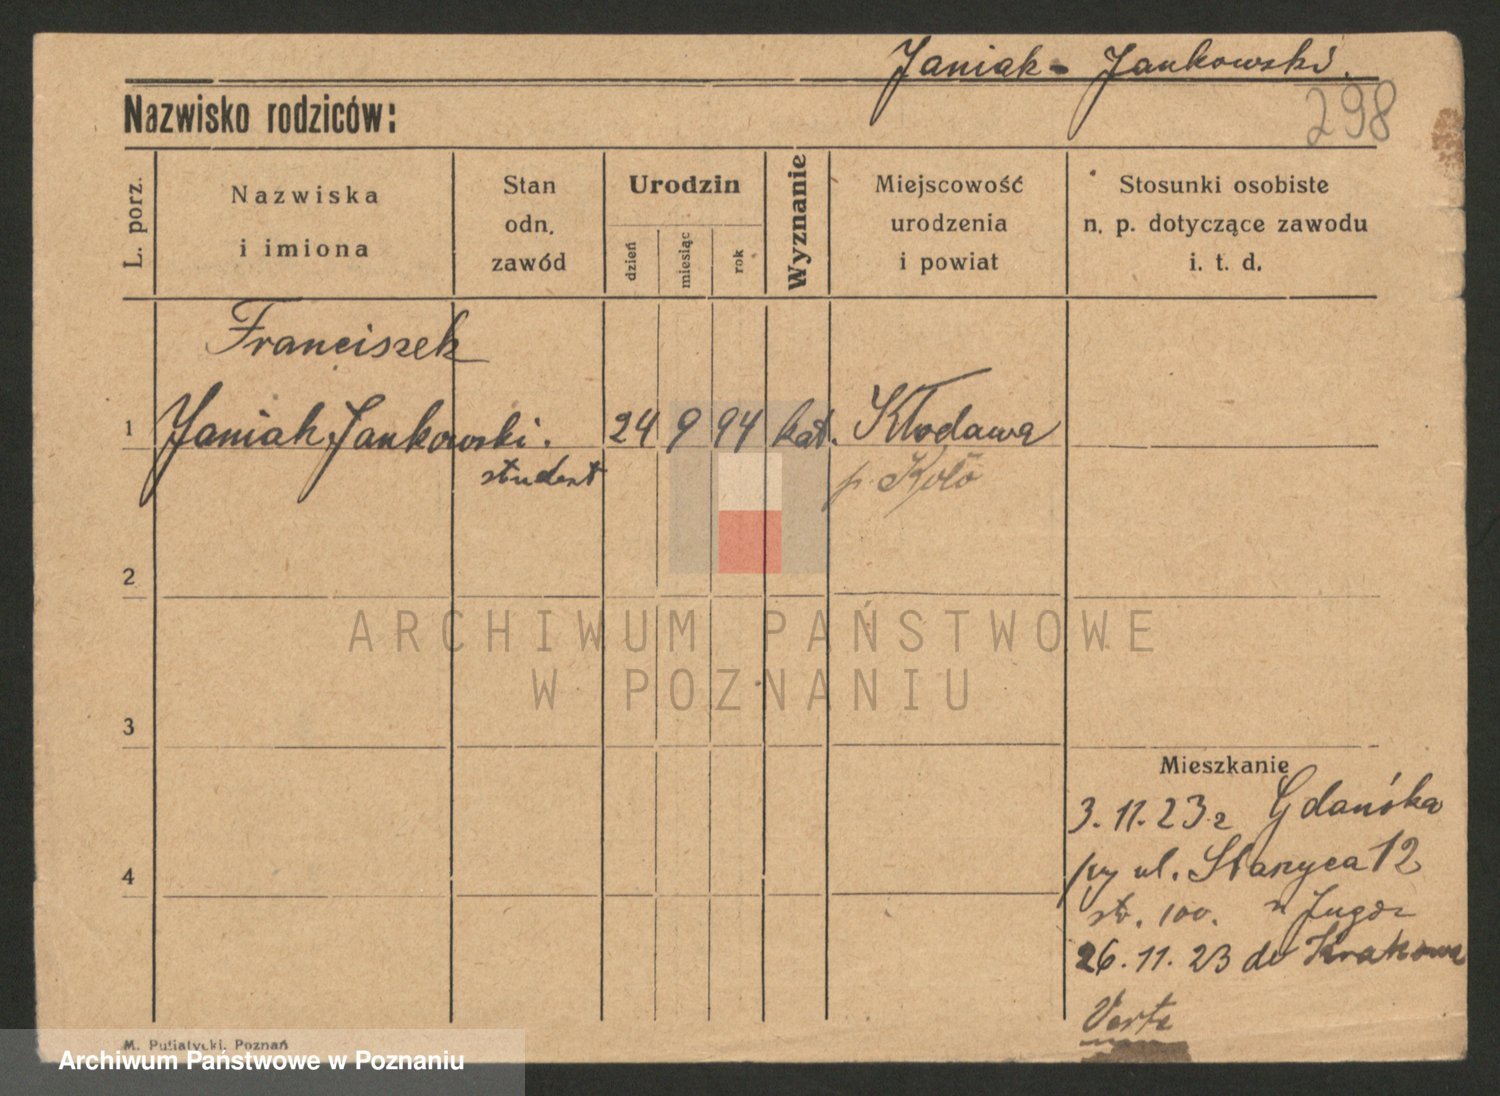 Janiak-Jankowski.
298
Nazwisko rodziców:
L. porz.
Nazwiska
i imiona
Stan
odn.
zawód
Urodzin
dzień
miesiąc
rok
Wyznanie
Miejscowość
urodzenia
i powiat
Stosunki osobiste
n. p. dotyczące zawodu
i. t. d.
Franciszek
1 Janiak Jankowski. 24 9 94 kat. Kłodawa
student p. Koło
2
ARCHIWUM PAŃSTWOWE
W POZNANIU
3
Mieszkanie
3.11.23 z Gdańska
4
ul. 12
str. 100.
26.11.23 do Krakowa
Verte
M. Putiatycki, Poznań
Archiwum Państwowe w Poznaniu